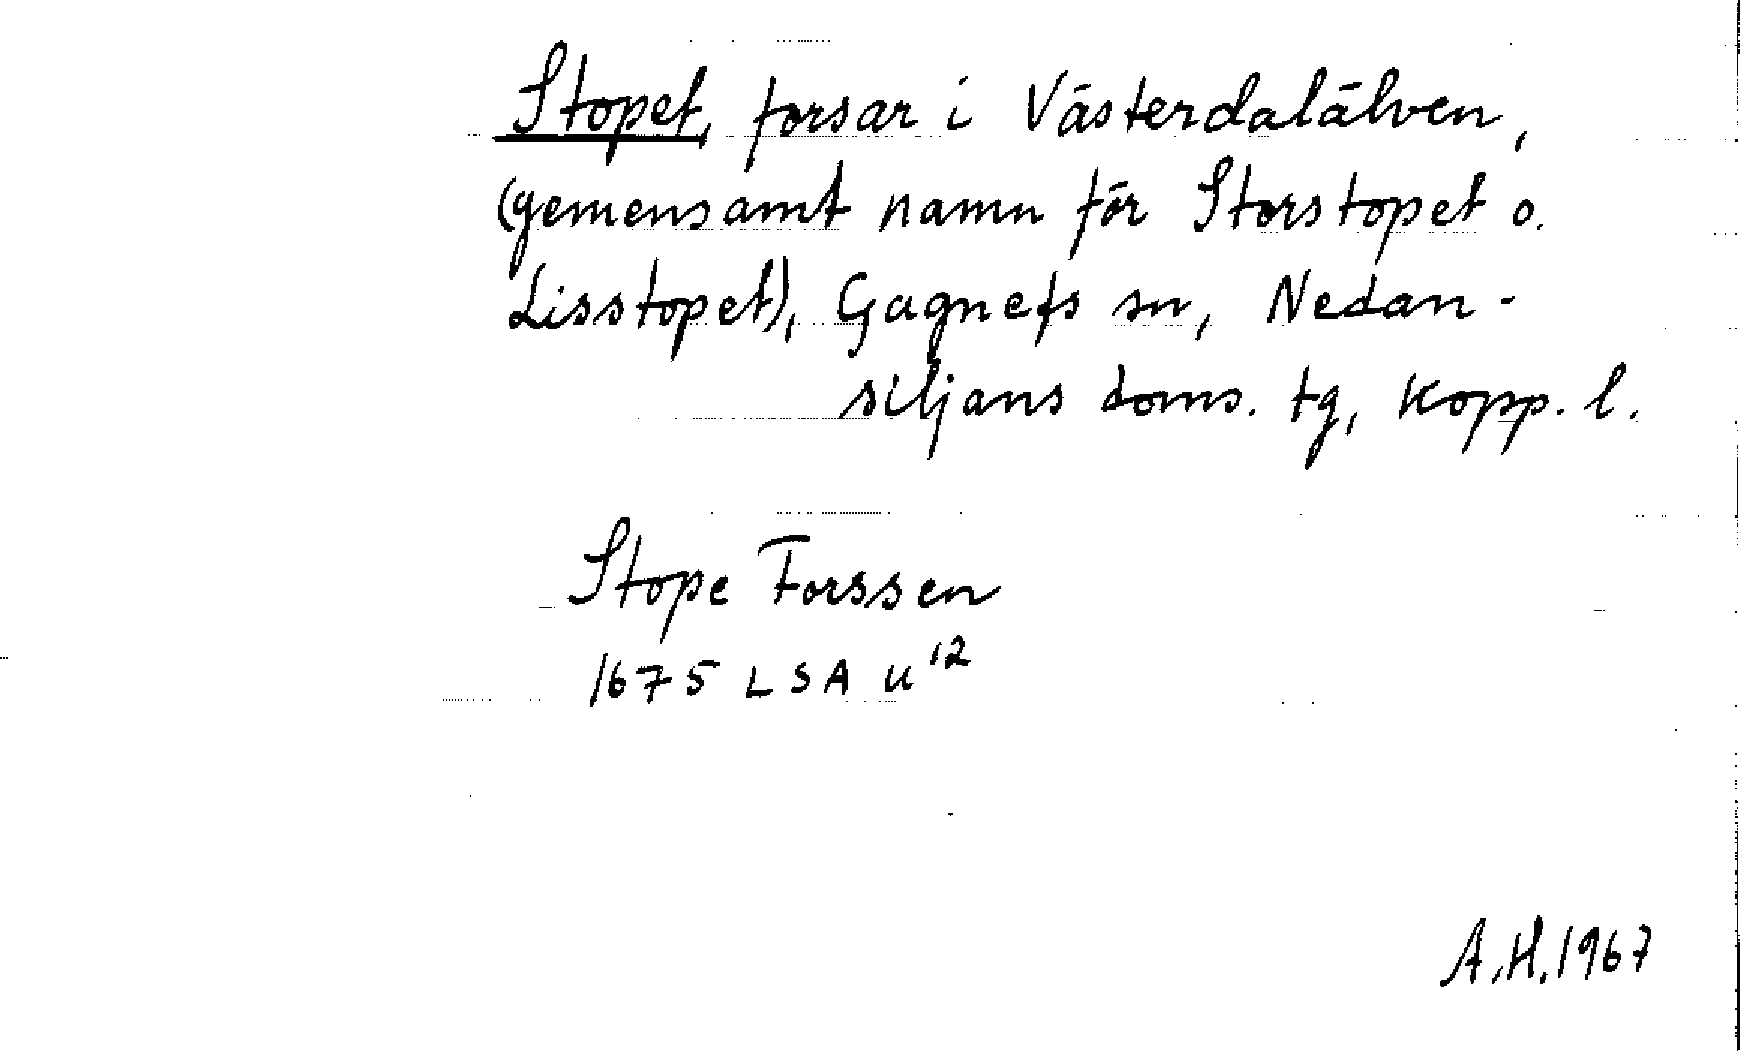 Stopet, forsar i Västerdalälven,
(gemensamt namn för Storstopet o.
Lisstopet), Gagnefs sn, Nedan-
siljans doms. tg, Kopp. l.
Stope Forssen
1675 LSA U 12
A.H. 1967